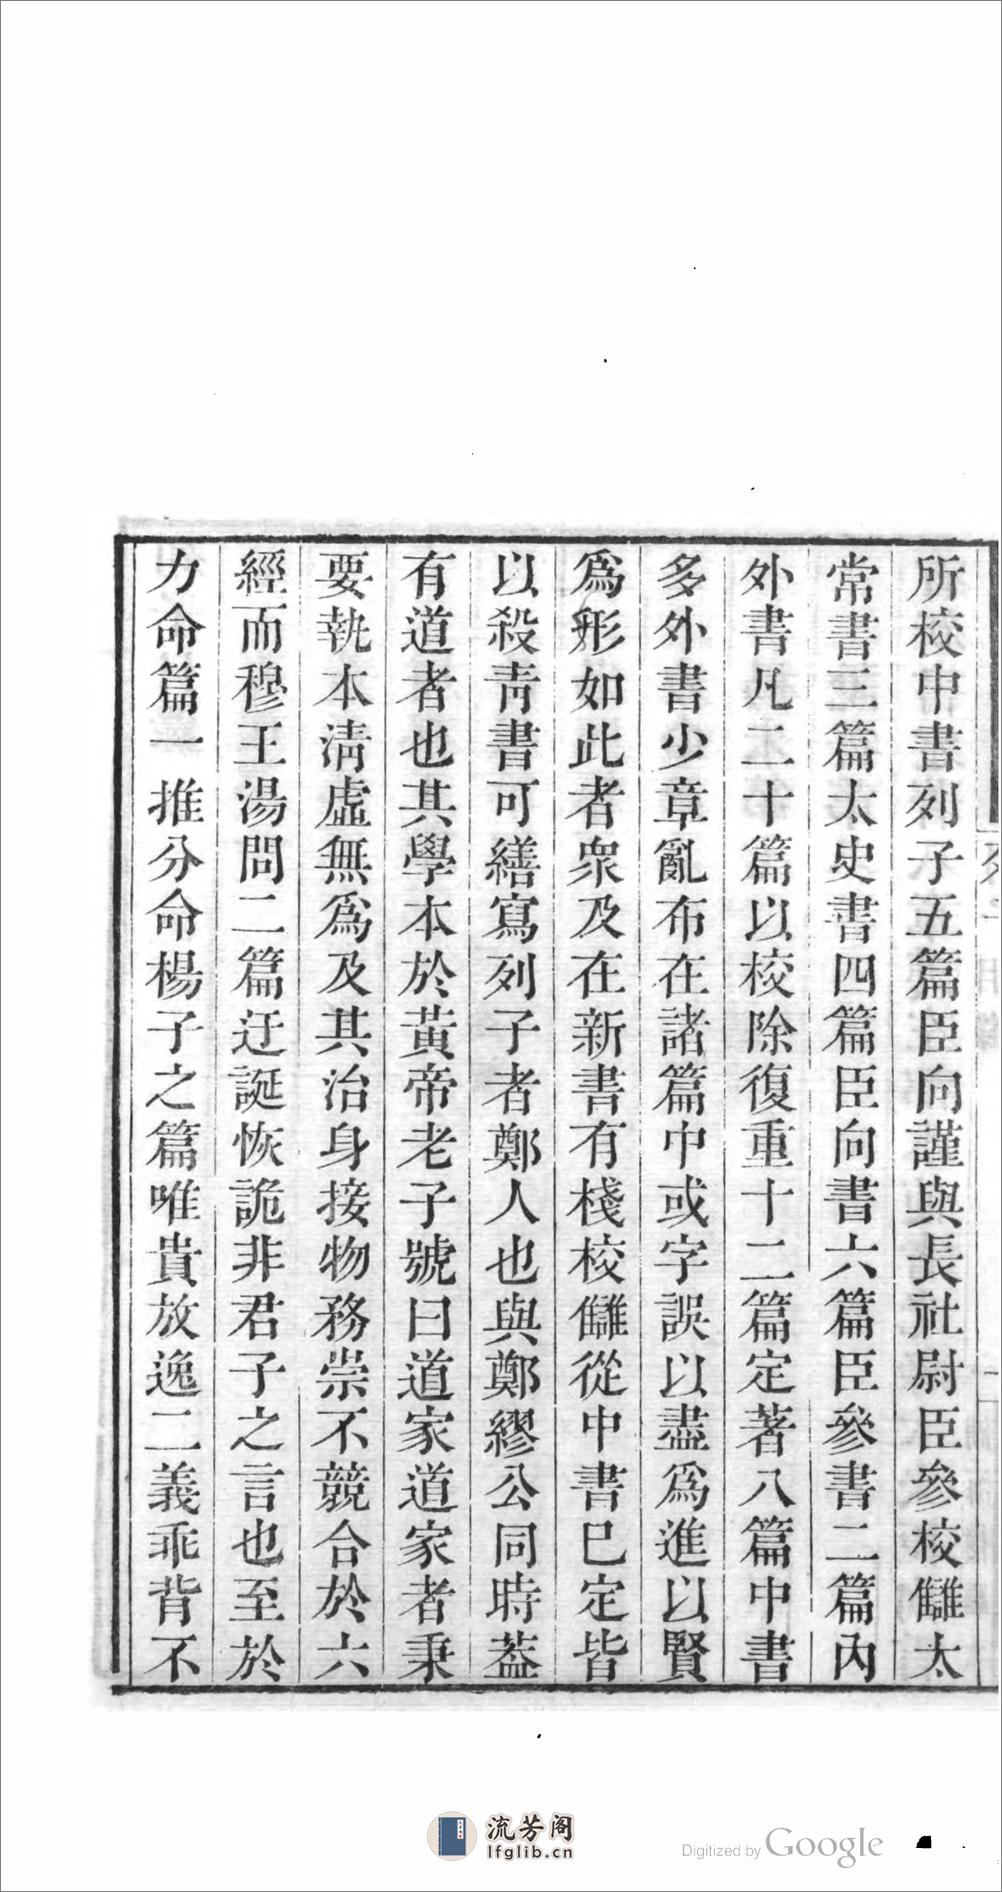 所校中書列子五篇臣向謹與長社尉臣參校讎太
常書三篇太史書四篇臣向書六篇臣參書二篇內
外書凡二十篇以校除復重十二篇定著八篇中書
多外書少章亂布在諸篇中或字誤以盡爲進以賢
爲形如此者衆及在新書有棧校讎從中書已定皆
以殺靑書可繕寫列子者鄭人也與鄭繆公同時葢
有道者也其學本於黃帝老子號曰道家道家者秉
要執本淸虛無爲及其治身接物務崇不競合於六
經而穆王湯問二篇迂誕恢詭非君子之言也至於
力命篇一推分命楊子之篇唯貴放逸二義乖背不
流芳阁
lfglib.cn
Digitized by Google